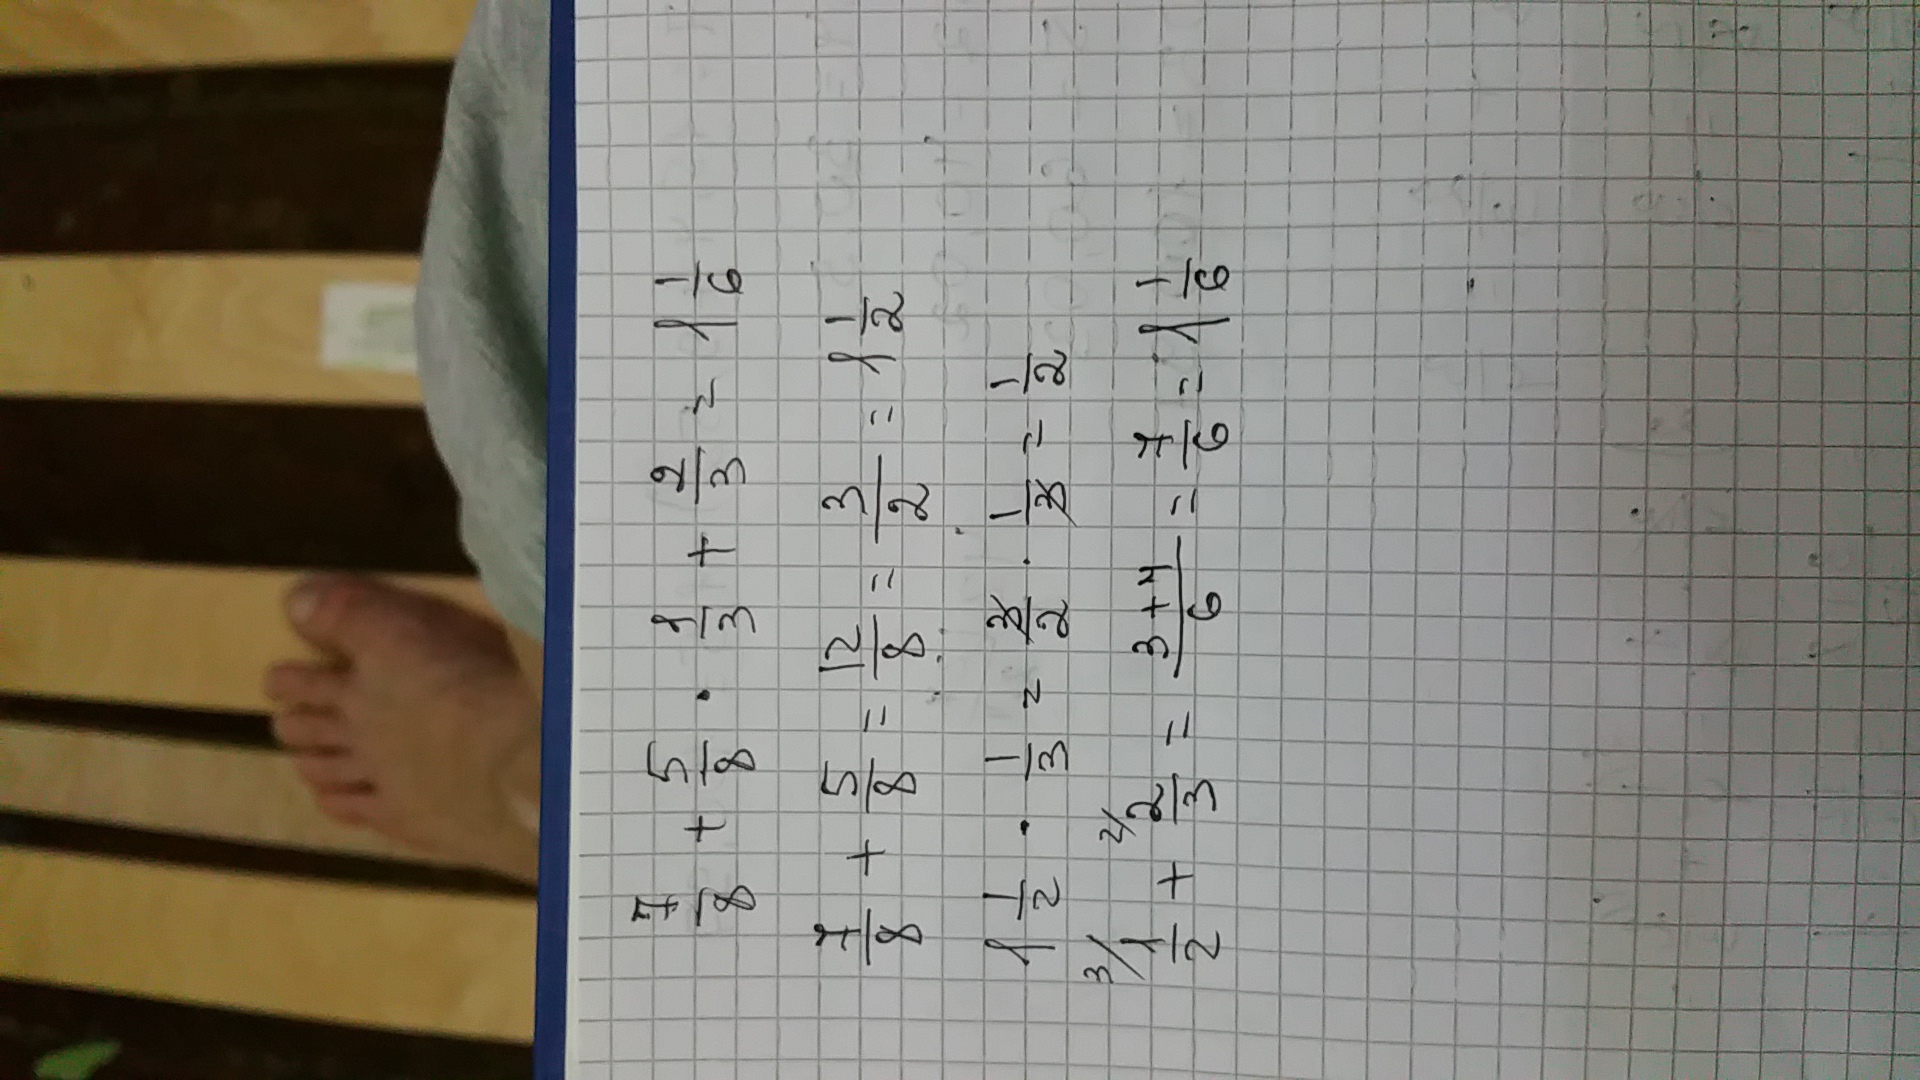 7/8 + 5/8 · 1/3 + 2/3 = 1 1/6
7/8 + 5/8 = 12/8 = 3/2 = 1 1/2
1 1/2 · 1/3 = 3/2 · 1/3 = 1/2
3/ 1/2 + 2/ 2/3 = 3+4/6 = 7/6 = 1 1/6